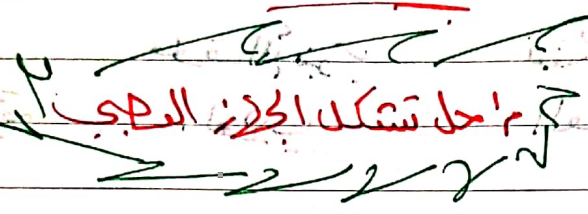 مراحل تشكل الجهاز العصبي